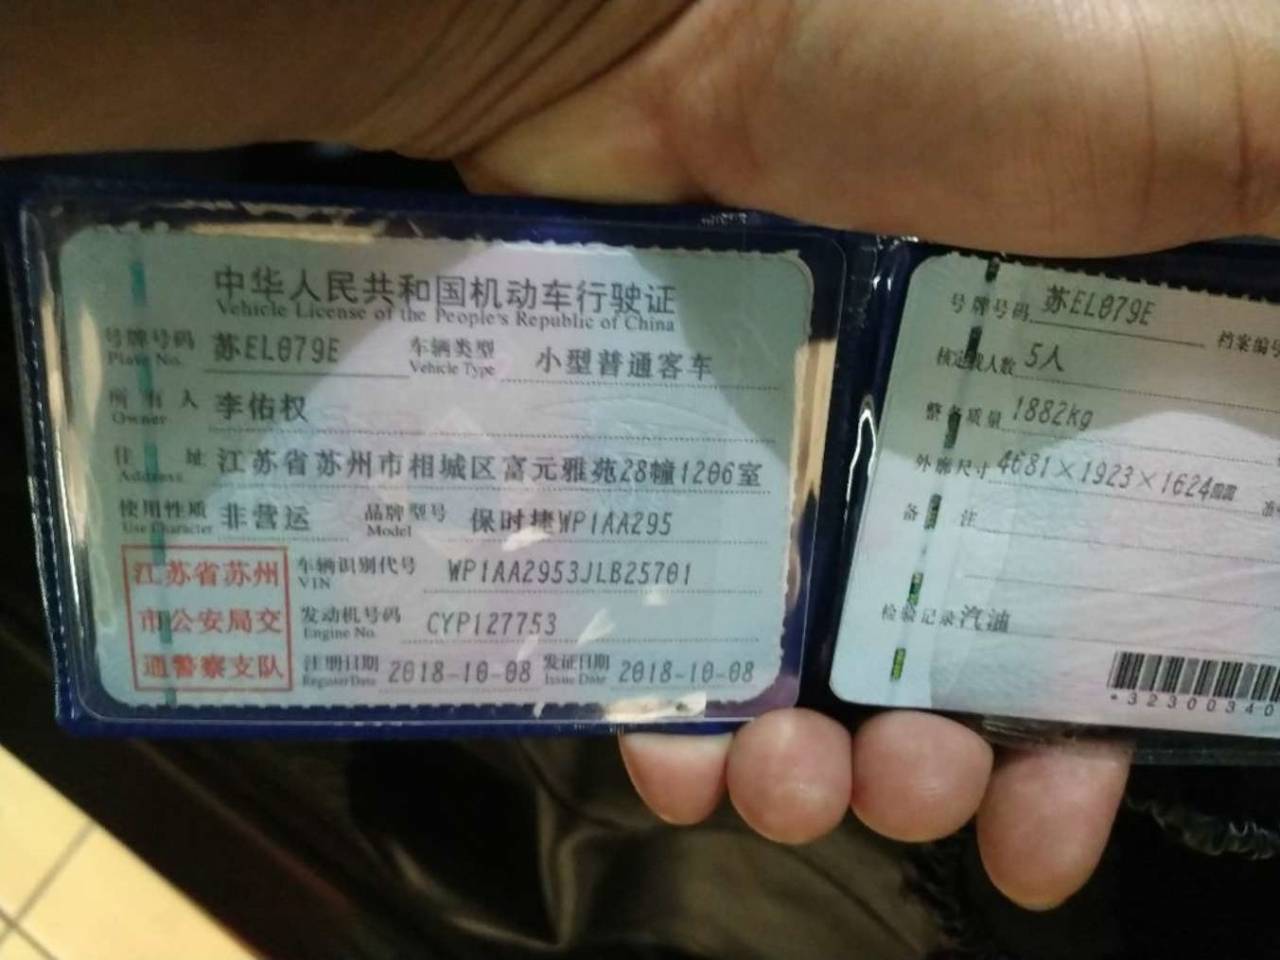 中华人民共和国机动车行驶证
Vehicle License of the People's Republic of China
号牌号码 苏EL079E 车辆类型 小型普通客车
Plate No. Vehicle Type
所有人 李佑权
Owner
住址 江苏省苏州市相城区富元雅苑28幢1206室
Address
使用性质 非营运 品牌型号 保时捷WP1AA295
Use Character Model
江苏省苏州
市公安局交
通警察支队
车辆识别代号 WP1AA2953JLB25701
VIN
发动机号码 CYP127753
Engine No.
注册日期 2018-10-08 发证日期 2018-10-08
Register Date Issue Date
号牌号码 苏EL079E 档案编号
核定载人数 5人
整备质量 1882kg
外廓尺寸 4681×1923×1624mm 准
备注
检验记录 汽油
*32300340